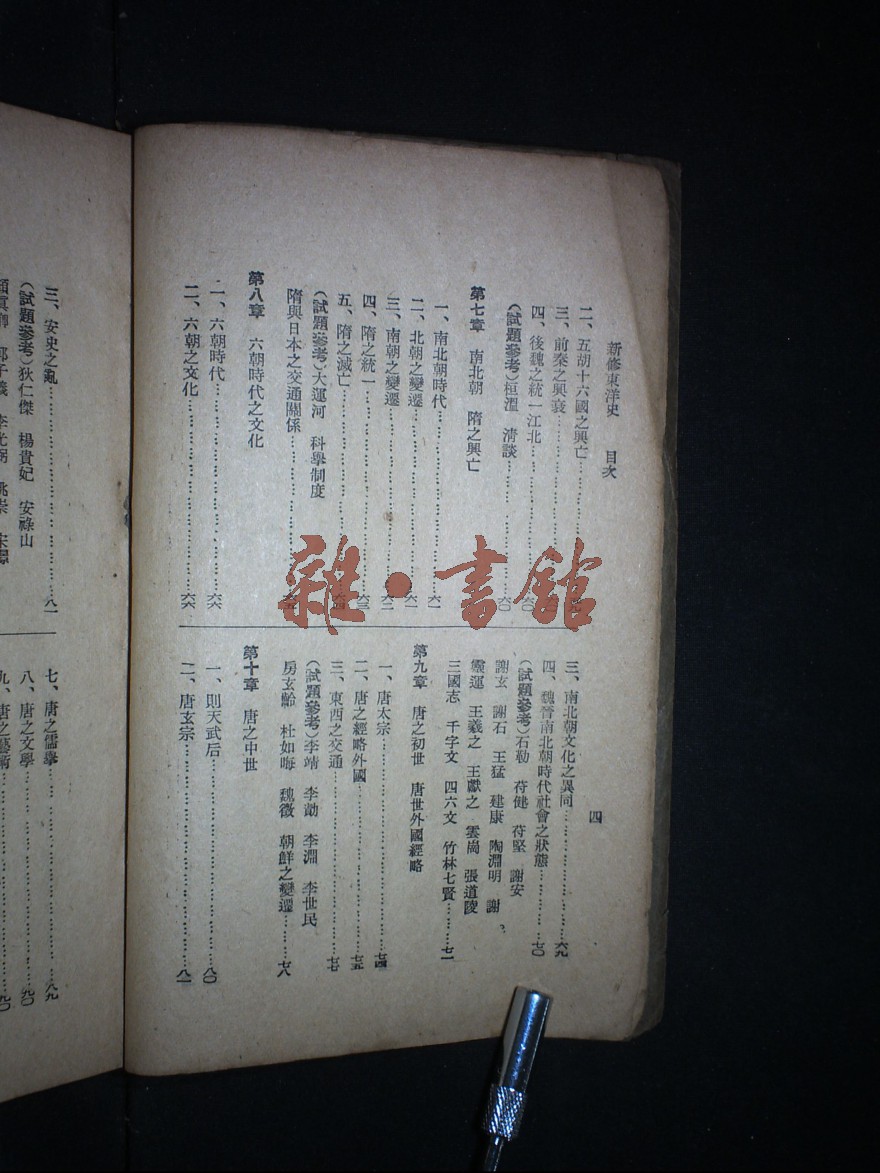 新修東洋史　目次
四
二、五胡十六國之興亡
三、前秦之興衰
四、後魏之統一江北……六〇
（試題參考）桓溫　清談……六〇
第七章　南北朝　隋之興亡
一、南北朝時代……六一
二、北朝之變遷……六一
三、南朝之變遷……六二
四、隋之統一……六三
五、隋之滅亡
（試題參考）大運河　科舉制度
隋與日本之交通關係
第八章　六朝時代之文化
一、六朝時代……六六
二、六朝之文化……六六
三、南北朝文化之異同……六九
四、魏晉南北朝時代社會之狀態……七〇
（試題參考）石勒　苻健　苻堅　謝安
謝玄　謝石　王猛　建康　陶淵明　謝
靈運　王羲之　王獻之　雲崗　張道陵
三國志　千字文　四六文　竹林七賢……七一
第九章　唐之初世　唐世外國經略
一、唐太宗……七四
二、唐之經略外國……七五
三、東西之交通……七七
（試題參考）李靖　李勣　李淵　李世民
房玄齡　杜如晦　魏徵　朝鮮之變遷……七八
第十章　唐之中世
一、則天武后……八〇
二、唐玄宗……八一
三、安史之亂……八一
（試題參考）狄仁傑　楊貴妃　安祿山
七、唐之儒學……八九
八、唐之文學……九〇
九、唐之藝術……九〇
雜・書館